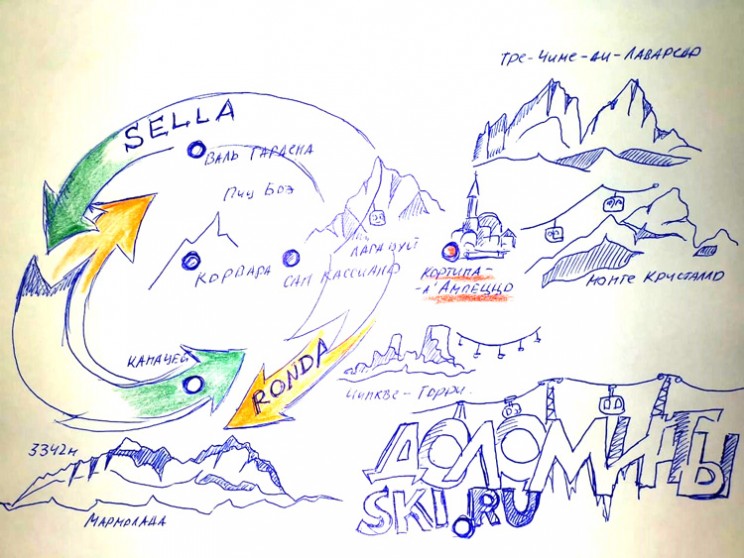 ТРЕ-ЧИМЕ-ДИ-ЛАВАРЕДО
SELLA
ВАЛЬ ГАРДЕНА
ПИЦ БОЭ
ЛАГАЦУЙ
КОРВАРА
САН КАССИАНО
КОРТИНА-
-Д'АМПЕЦЦО
МОНТЕ КРИСТАЛЛО
КАНАЦЕЙ
RONDA
ЧИНКВЕ-ТОРРИ
3342м
МАРМОЛАДА
ДОЛОМИТЫ
SKI.RU